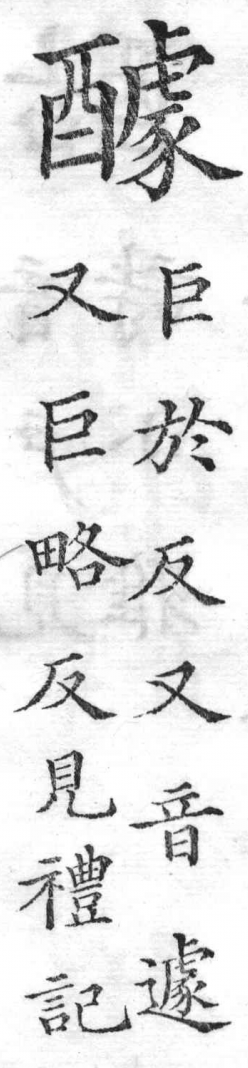 醵
巨於反又音遽
又巨略反見禮記